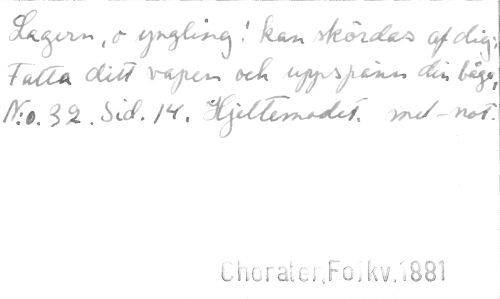 Lagern, o yngling! kan skördas af dig;
Fatta ditt vapen och uppspänn din båge,
N:o. 32. Sid. 14. Hjeltemodet. med not.
Choraler, Folkv, 1881